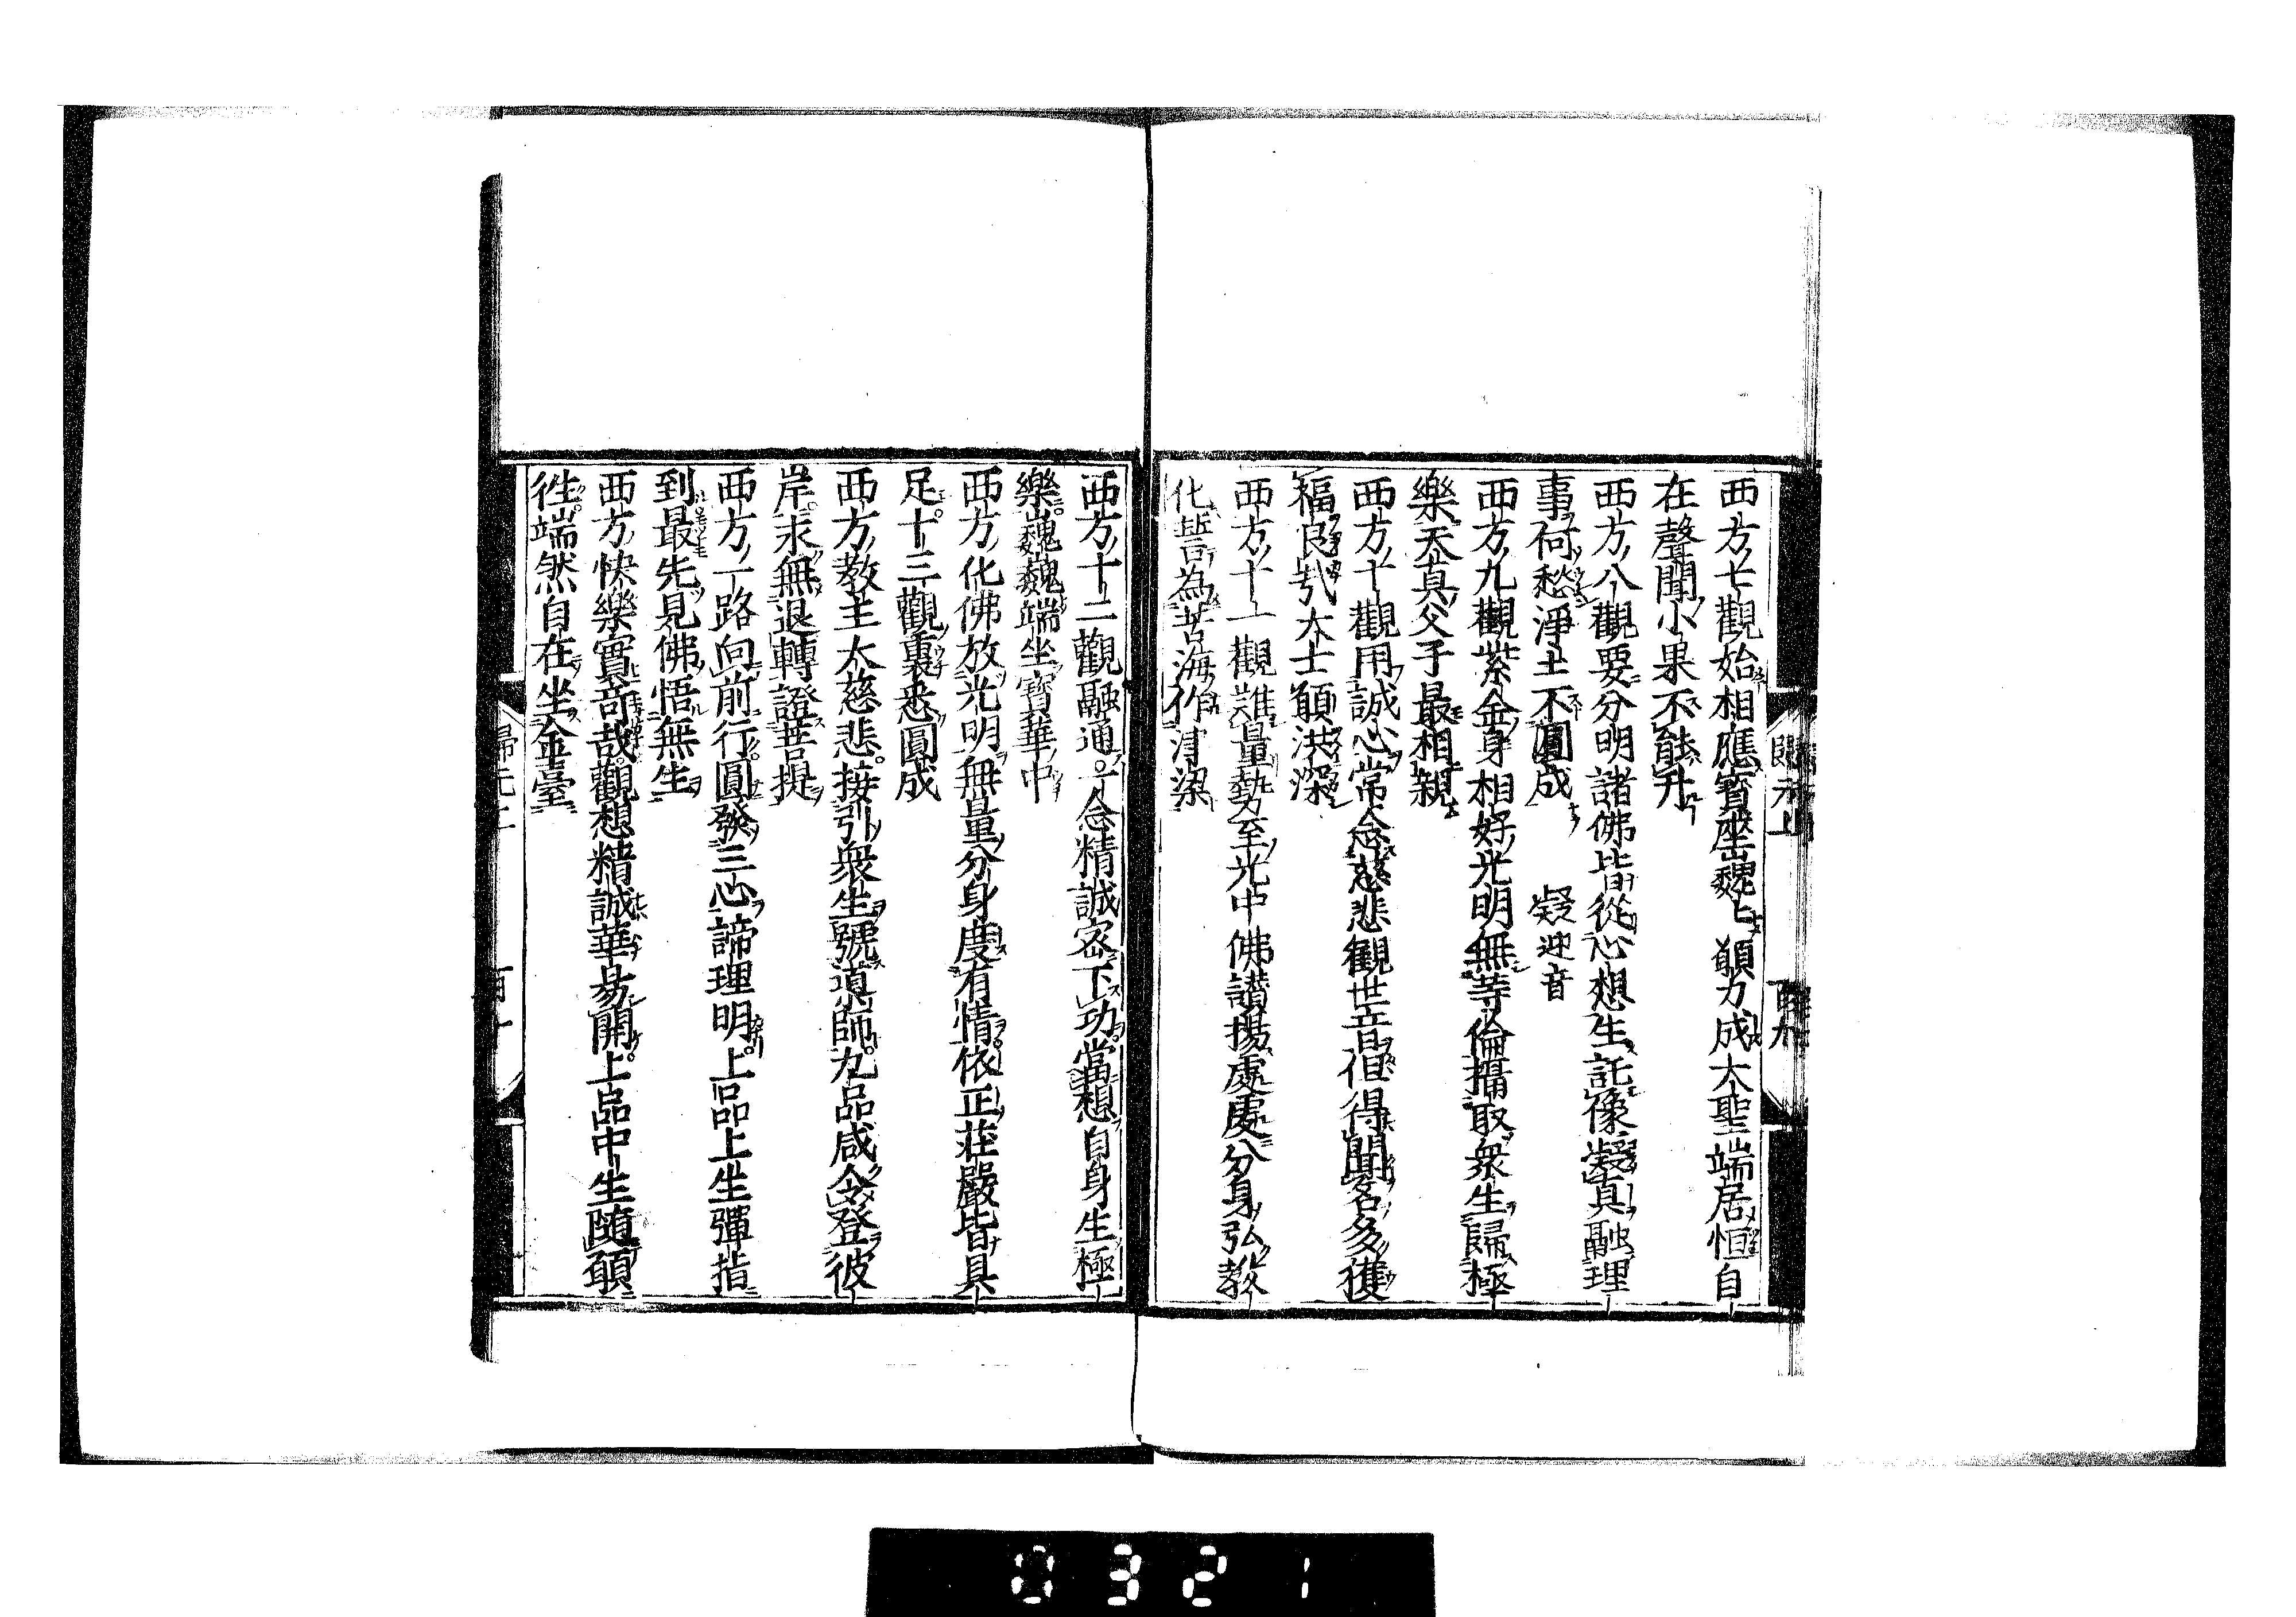 西方七觀始相應寶座巍巍願力成大聖端居恒自
在聲聞小果不能升
西方八觀要分明諸佛皆從心想生託像凝真融理
事何愁淨土不圓成 凝迎音
西方九觀紫金身相好光明無等倫攝取衆生歸極
樂天真父子最相親
西方十觀用誠心常念慈悲觀世音但得聞名多獲
福良哉大士願洪深
西方十一觀難量勢至光中佛讃揚處處分身弘教
化誓為苦海作津梁
西方十二觀融通一念精誠密下功當想自身生極
樂巍巍端坐寶華中
西方化佛放光明無量分身度有情依正莊嚴皆具
足十三觀裏悉圓成
西方教主大慈悲接引衆生號導師九品咸令登彼
岸永無退轉證菩提
西方一路向前行圓發三心諦理明上品上生彈指
到最先見佛悟無生
西方快樂實奇哉觀想精誠華易開上品中生隨願
徃端然自在坐金臺
0321